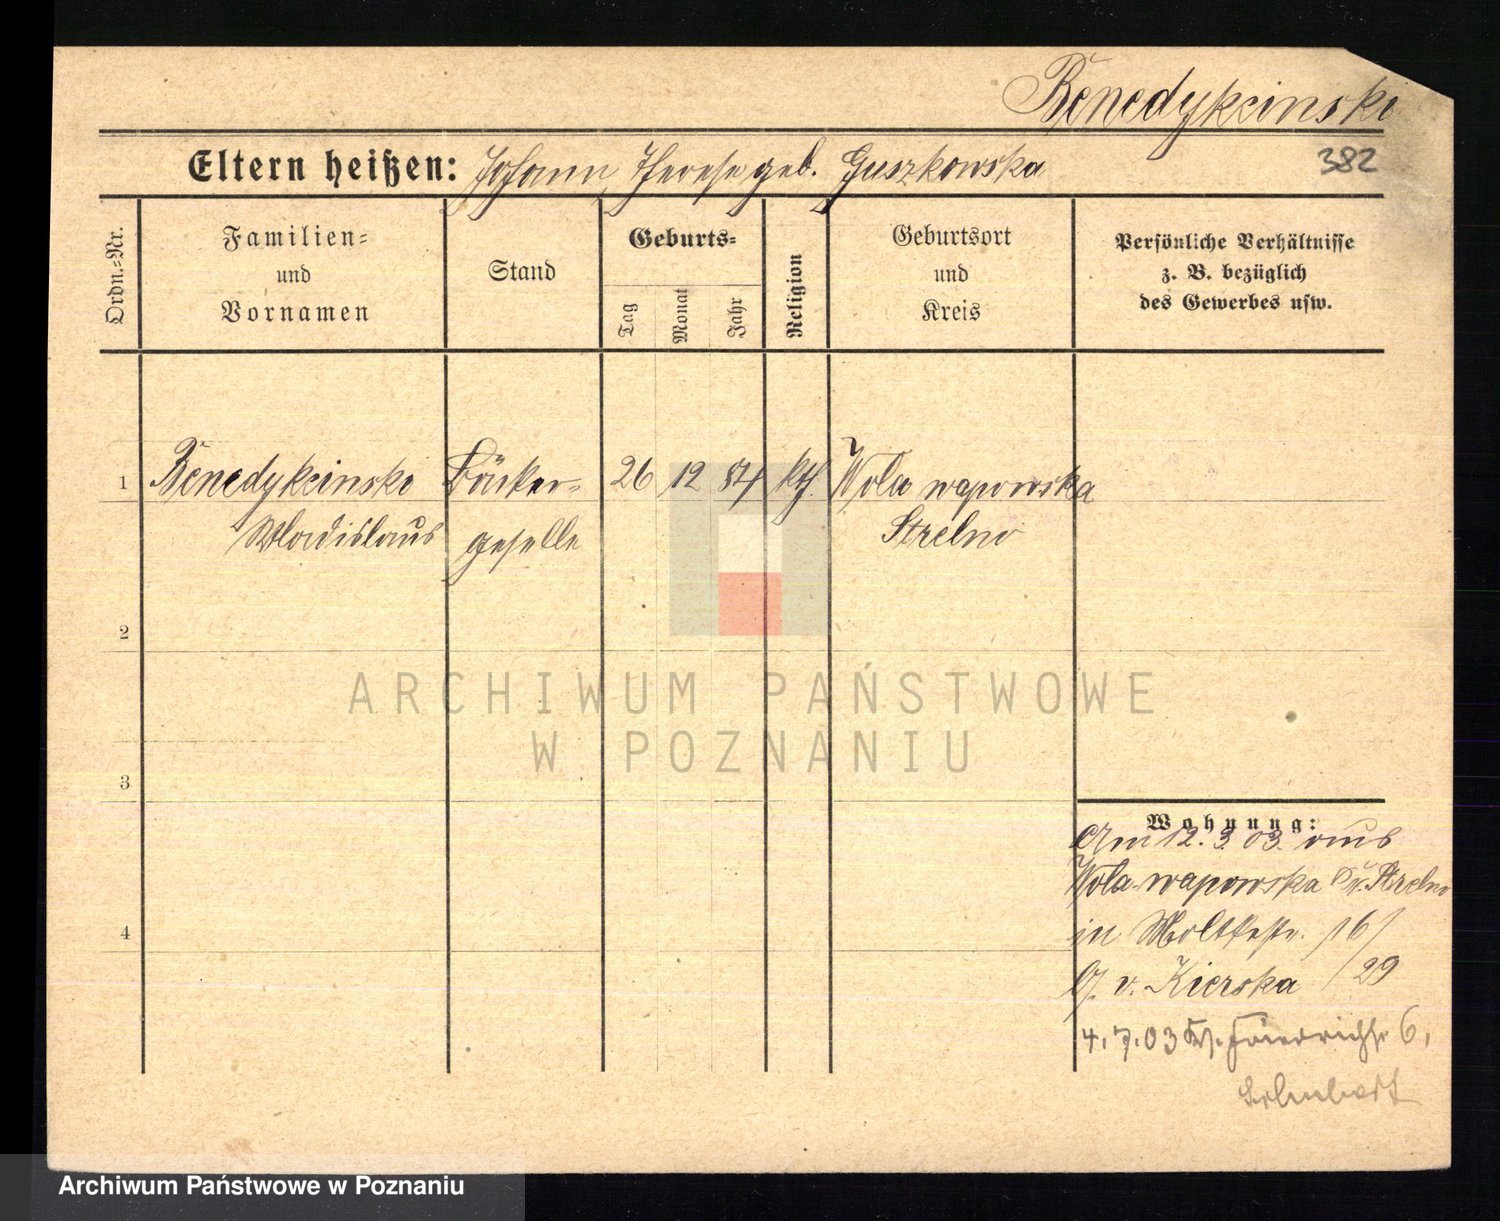 Benedykcinski
382
Eltern heißen: Johann, Therese geb. Guszkowska
Ordn.-Nr.
Familien-
und
Vornamen
Stand
Geburts-
Tag
Monat
Jahr
Religion
Geburtsort
und
Kreis
Persönliche Verhältnisse
z. B. bezüglich
des Gewerbes usw.
1 Benedykcinski Bäcker- 26 12 84 kth. Wola wapowska
Wladislaus geselle Strelno
2
ARCHIWUM PAŃSTWOWE
W POZNANIU
3
Wohnung:
Am 12. 3. 03. aus
Wola-wapowska Kr. Strelno
in Moltkestr. 16/
b. v. Kierska /29
4
4. 7. 03 Kl. Friedrichstr 6,
Schubert
Archiwum Państwowe w Poznaniu